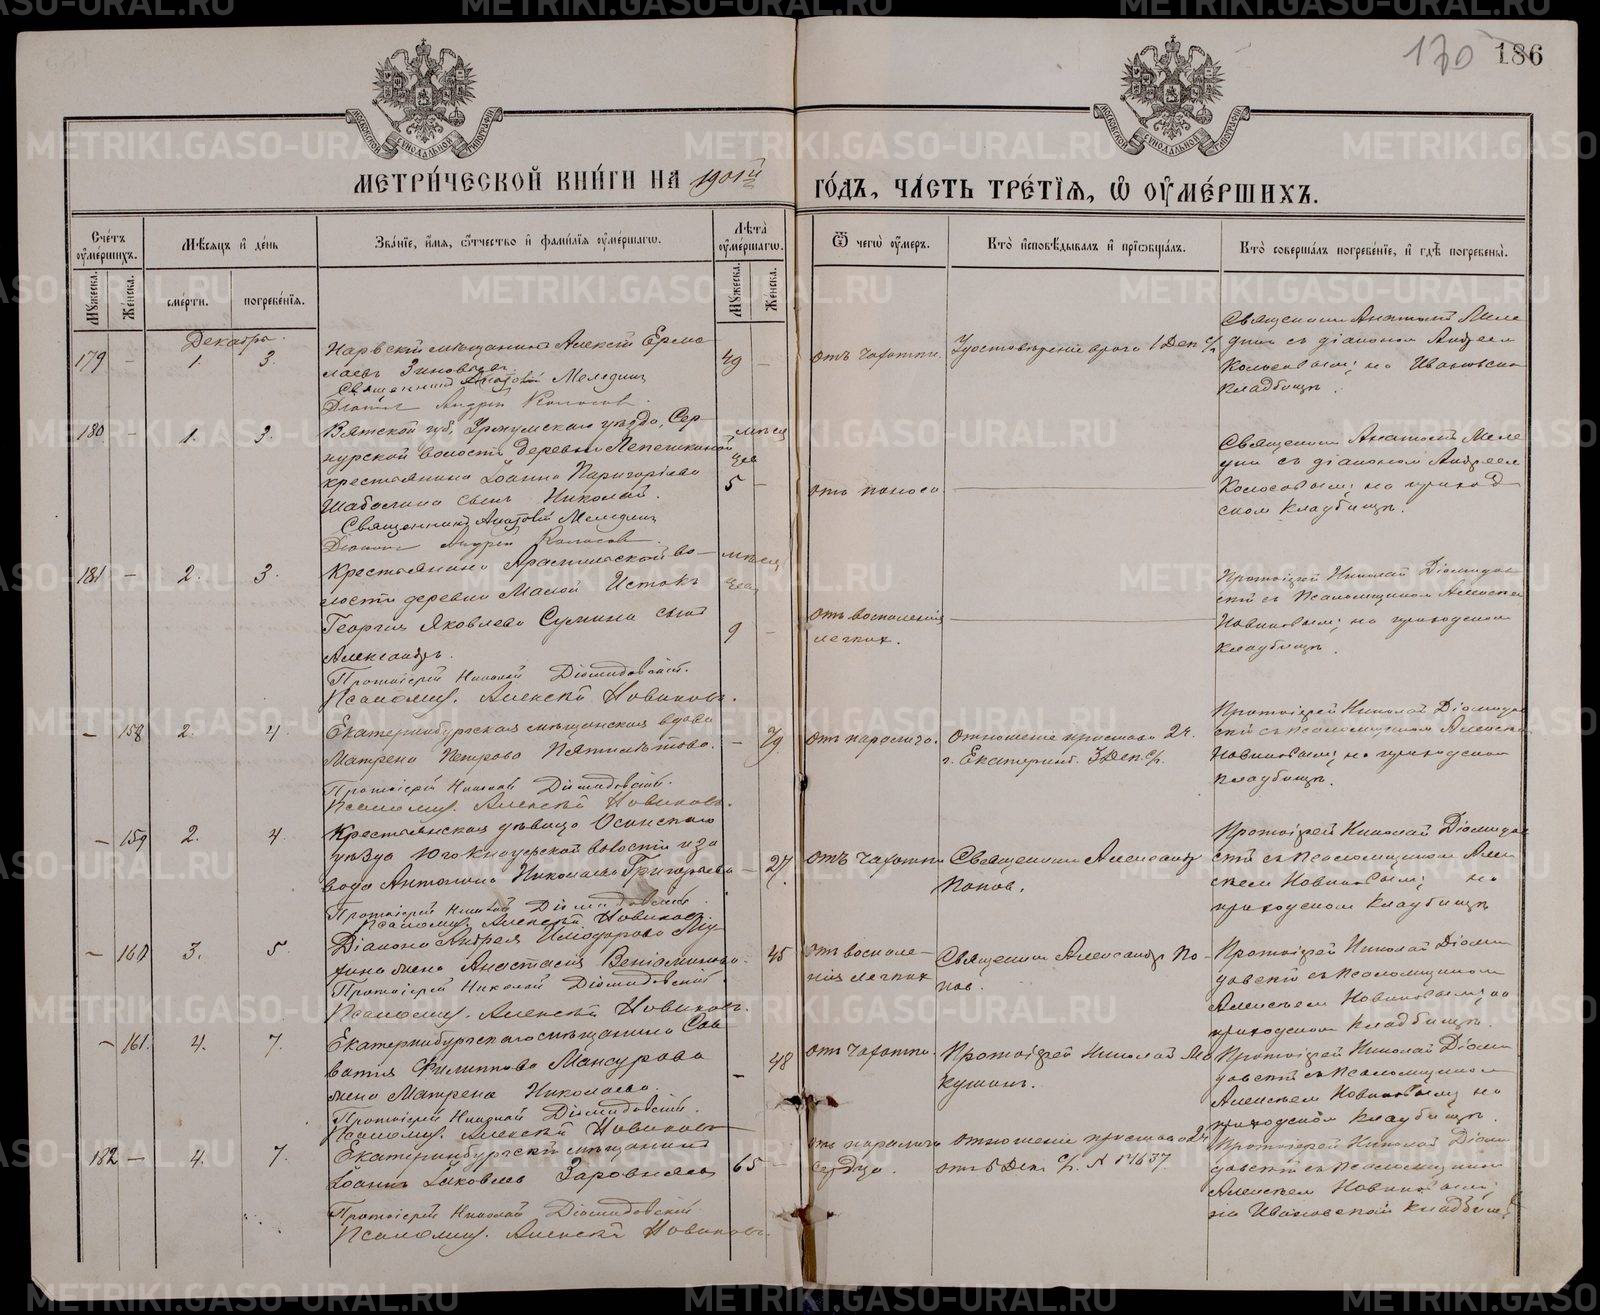 170 186
МОСКОВСКОЙ СѴНОДАЛЬНОЙ ТИПОГРАФІИ
МОСКОВСКОЙ СѴНОДАЛЬНОЙ ТИПОГРАФІИ
МЕТРИ́ЧЕСКОЙ КНИ́ГИ НА 1901й ГО́ДЪ, ЧА́СТЬ ТРЕ́ТІЯ, Ѿ ОУМЕ́РШИХЪ.
Сче́тъ оуме́ршихъ.
Мужеска.
Же́нска.
Мѣсяцъ и де́нь
сме́рти.
погребе́нія.
Зва́ніе, и́мя, о́тчество и фами́лія оуме́ршаго.
Лѣта оуме́ршаго.
Мужеска.
Же́нска.
Ѿ чего оу́меръ.
Кто̀ исповѣдывалъ и пріобщалъ.
Кто̀ совершалъ погребе́ніе, и гдѣ погребены̀.
Декабрь.
179 – 1. 3.
Нарвскій мѣщанинъ Алексій Ермо
лаевъ Зиновьевъ
Священникъ Анатолій Меледин
Діаконъ Андрей Колосов.
49 –
отъ чахотки.
Удостовѣреніе врача 1 Дек. с/г.
Священник Анатолій Меле
дин съ діаконом Андреем
Колосовым; на Ивановском
кладбищѣ.
180 – 1. 3.
Вятской губ, Уржумскаго уѣзда, Сер-
нурской волости деревни Лепешкиной
крестьянина Іоанна Григоріева
Шабалина сынъ Николай.
Священникъ Анатолій Меледин
Діаконъ Андрей Колосов.
мѣся
цев
5 –
отъ поноса
Священник Анатолій Меле
дин съ діаконом Андреем
Колосовым; на приход
ском кладбищѣ.
181 – 2. 3.
Крестьянина Арамильской во-
лости деревни Малой Истокъ
Георгія Яковлева Сумина сынъ
Александръ.
Протоіерей Николай Діомидовскій.
Псаломщ. Алексѣй Новиковъ.
мѣся
цев
9 –
отъ воспаленія
легких.
Протоіерей Николай Діомидов
скій съ Псаломщиком Алексѣем
Новиковым; на приходском
кладбищѣ.
– 158 2. 4.
Екатеринбургская мѣщанская вдова
Матрена Петрова Пятилѣтова.
Протоіерей Николай Діомидовскій.
Псаломщ. Алексѣй Новиковъ.
– 79
отъ паралича.
Отношеніе пристава 2 ч.
г. Екатеринб. 3 Дек. с/г.
Протоіерей Николай Діомидов
скій съ псаломщиком Алексѣем
Новиковым; на приходском
кладбищѣ.
– 159 2. 4.
Крестьянская дѣвица Осинскаго
уѣзда Юго-Кнауфской волости и за
вода Антонина Николаева Григорьева
Протоіерей Николай Діомидовскій.
Псаломщ. Алексѣй Новиковъ.
– 27.
отъ чахотки
Священник Александр
Попов.
Протоіерей Николай Діомидов
скій съ Псаломщиком Алек
сѣем Новиковым; на
приходском кладбищѣ
– 160 3. 5.
Діакона Андрея
жена Анастасія Веніаминова.
Протоіерей Николай Діомидовскій
Псаломщ. Алексѣй Новиковъ.
– 45
отъ воспале-
нія легких
Священник Александр По-
пов.
Протоіерей Николай Діоми
довскій съ Псаломщиком
Алексѣем Новиковым; на
приходском кладбищѣ.
– 161. 4. 7.
Екатеринбургскаго мѣщанина Сав
ватія Филиппова Мансурова
жена Матрена Николаева.
Протоіерей Николай Діомидовскій.
Псаломщ. Алексѣй Новиковъ
– 48
отъ чахотки.
Протоіерей Николай Ма
кушин.
Протоіерей Николай Діоми
довскій съ Псаломщиком
Алексѣем Новиковым; на
приходском кладбищѣ.
182 – 4. 7.
Екатеринбургскій мѣщанинъ
Іоаннъ Іаковлев Заровняев
Протоіерей Николай Діомидовскій.
Псаломщ. Алексѣй Новиковъ.
65 –
отъ паралича
сердца.
отношеніе пристава 2 ч.
отъ 5 Дек. с/г. № 17637.
Протоіерей Николай Діоми
довскій съ Псаломщиком
Алексѣем Новиковым;
на Ивановском кладбищѣ
METRIKI.GASO-URAL.RU